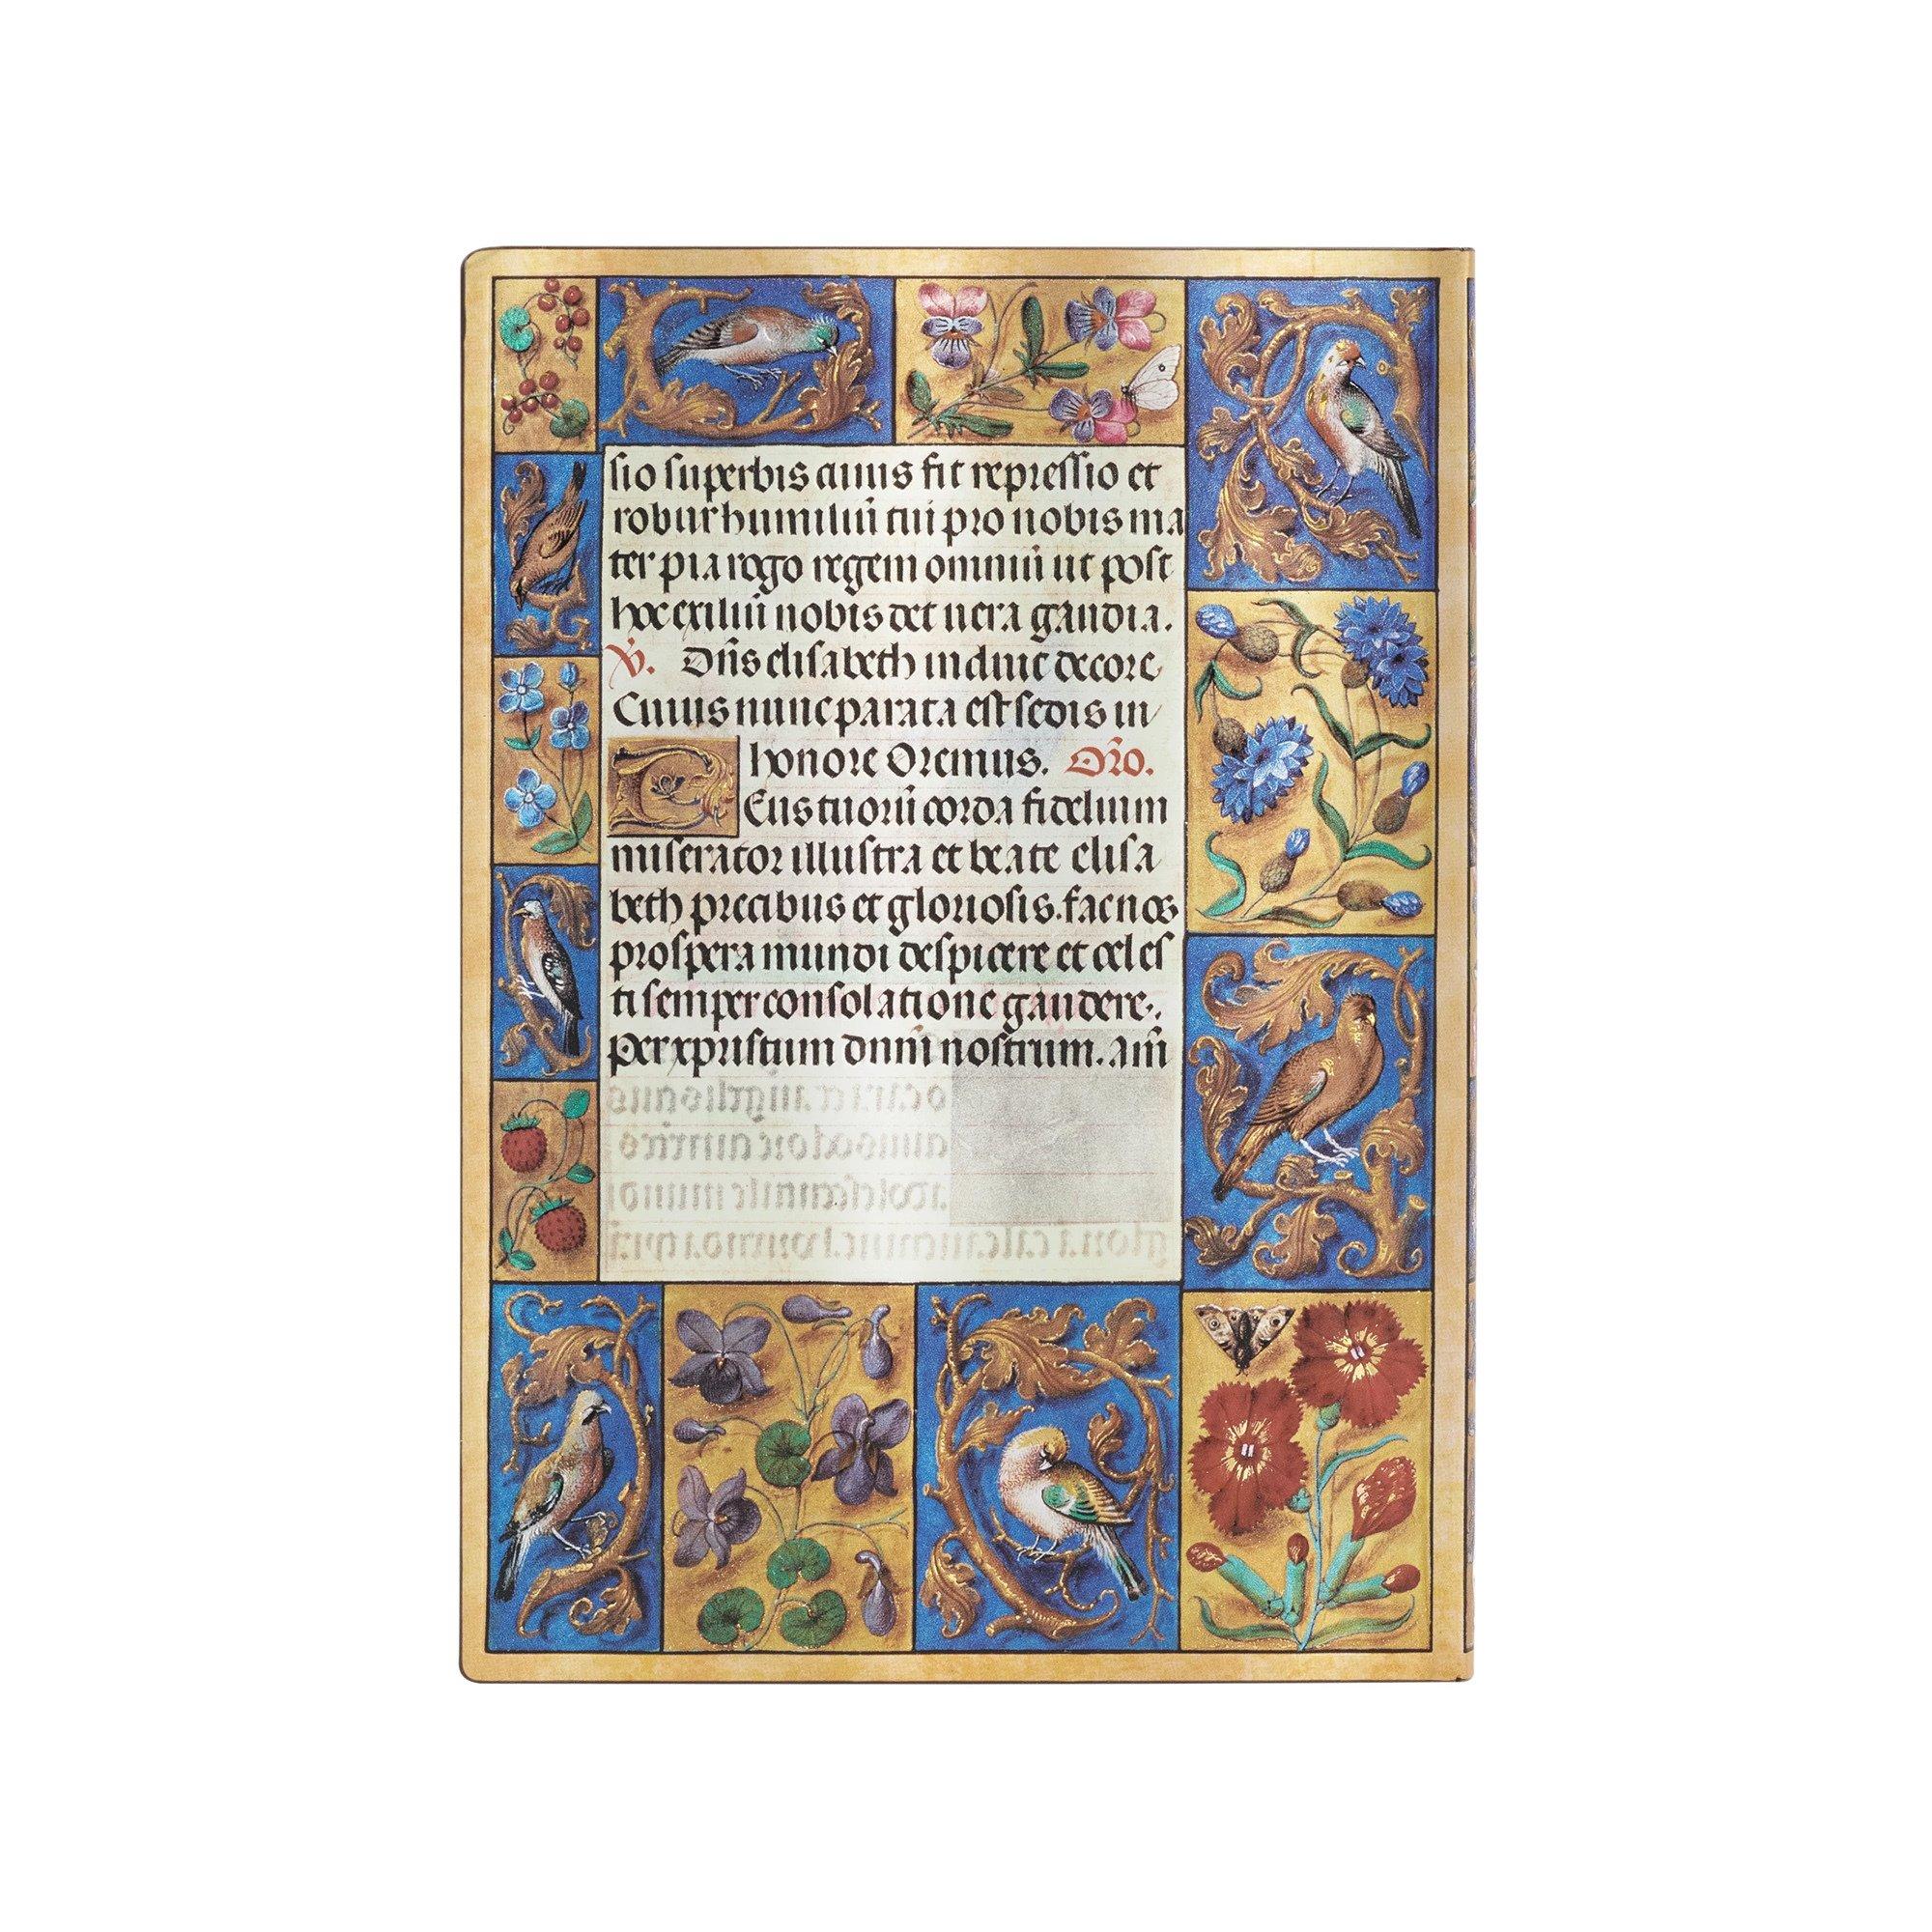 sio superbis cuius fit repressio et
robur humiliū cui pro nobis ma
ter pia rogo regem omniū ut post
hoc exiliū nobis det uera gaudia.
℣. Dn̄s elisabeth induit decore
Cuius nunc parata est sedis in
honore Oremus. Or̄o.
Deus tuorū corda fidelium
miserator illustra et beate elisa
beth precibus et gloriosis. fac nos
prospera mundi despicere et celes
ti semper consolatione gaudere.
Per xpristum dnm̄ nostrum. Am̄